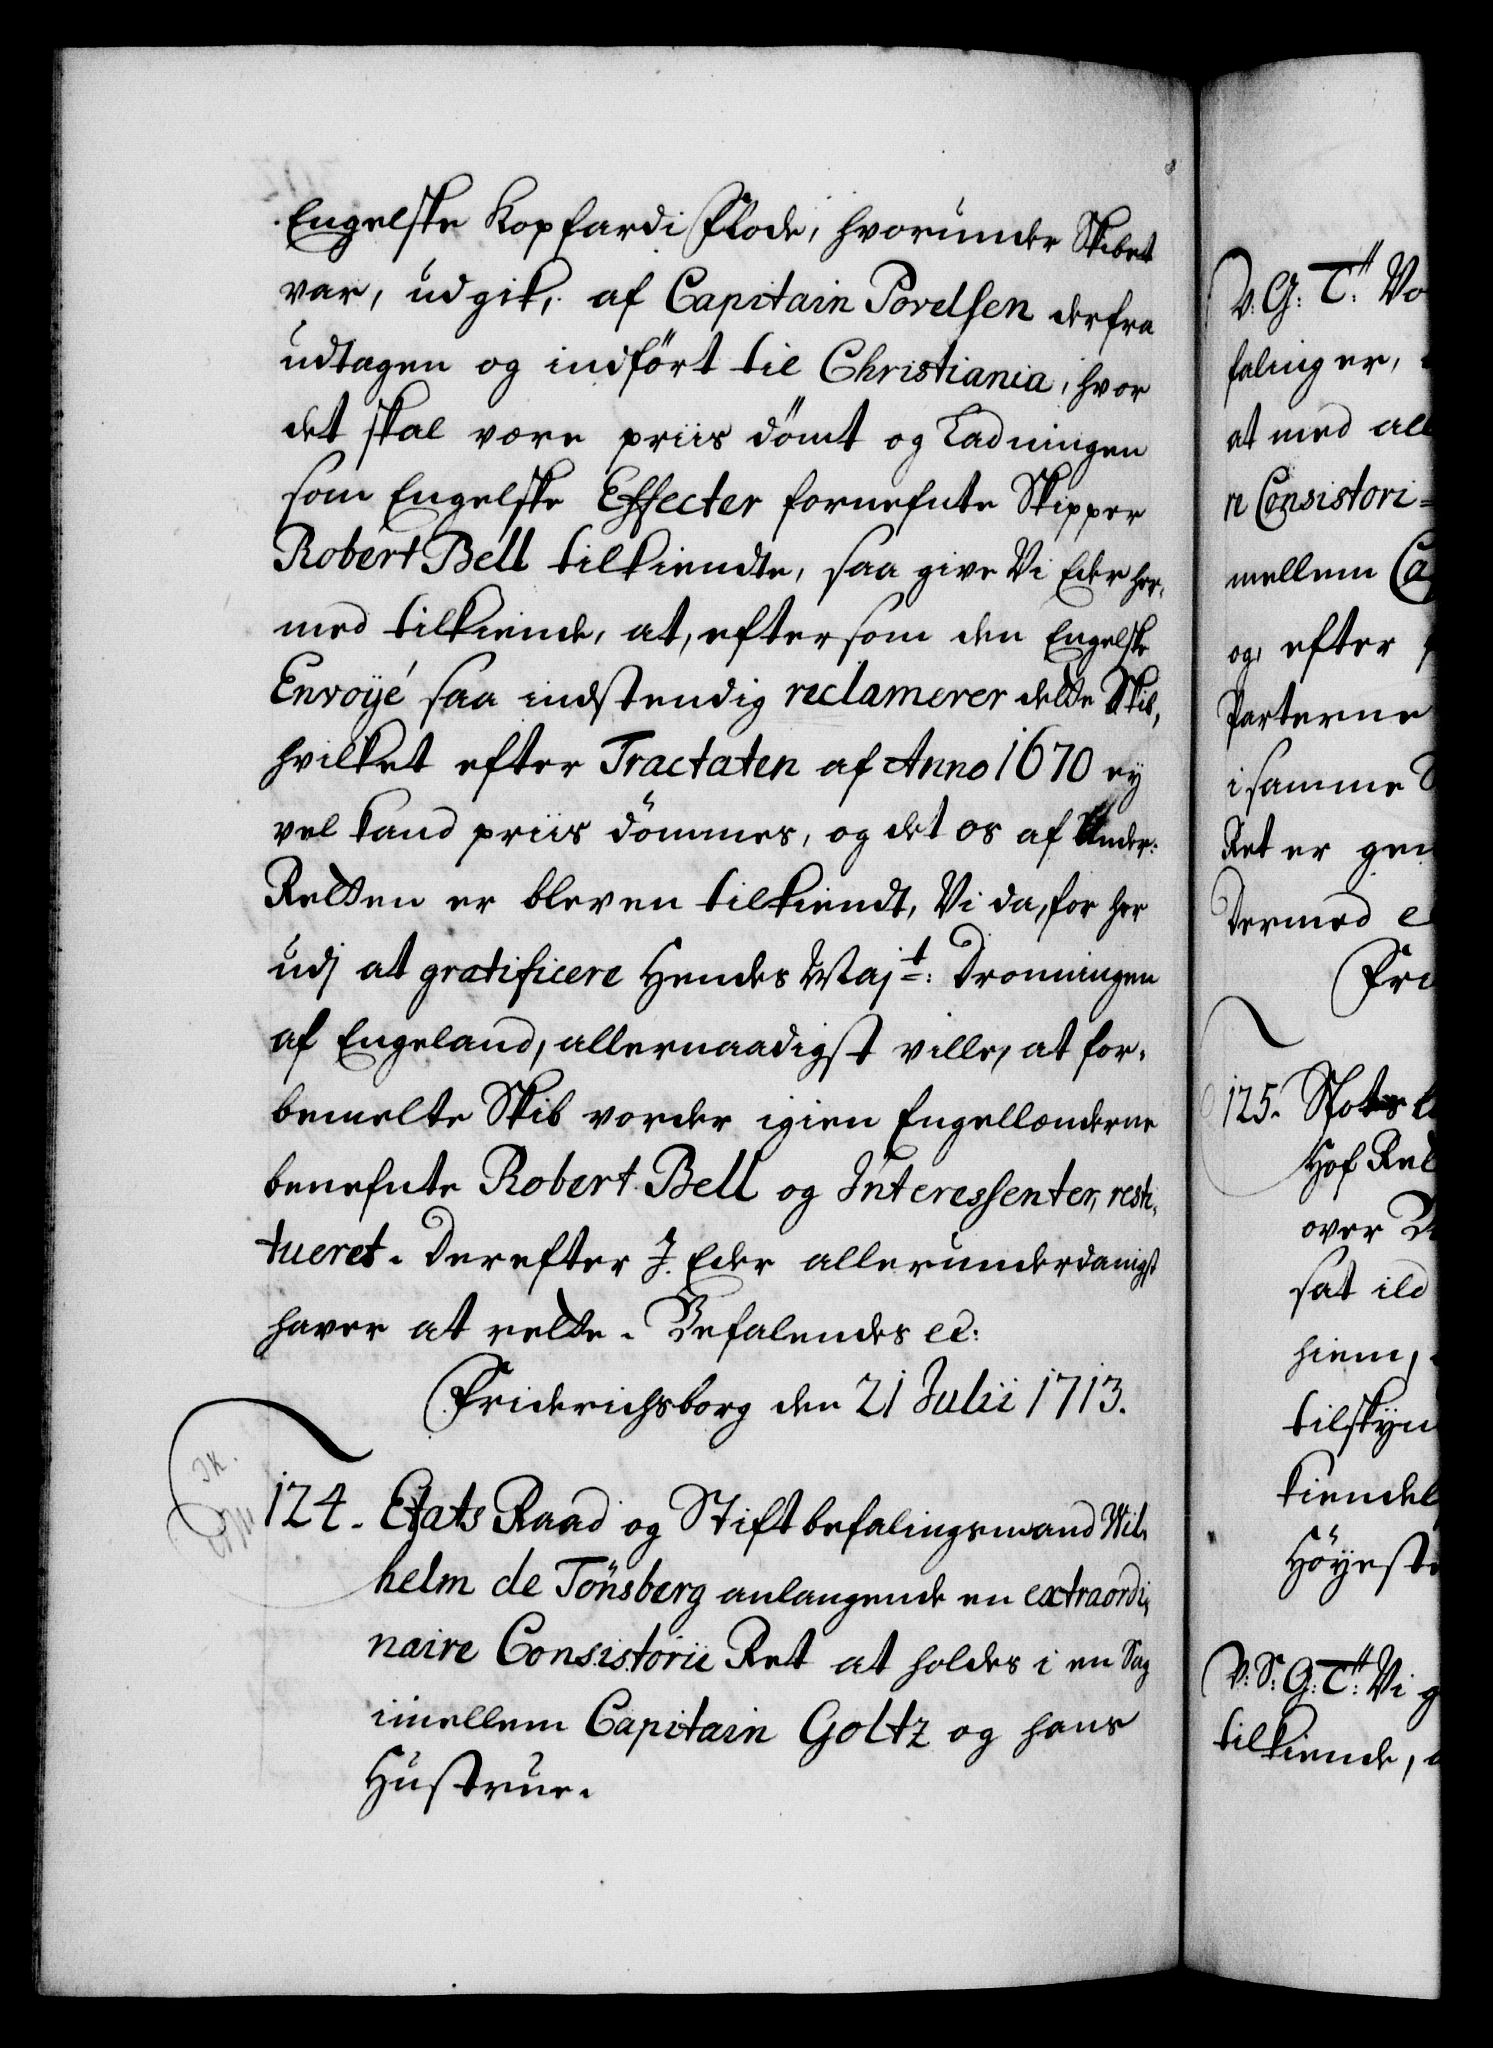 Engelske Kopfardi Flode, hvorunder Skibet
var, udgik, af Capitain Povelsen derfra
udtagen og indført til Christiania, hvor
det skal være priis dömt og Ladningen
som Engelske Effecter fornefnte Skipper
Robert Bell tilkiendte, saa give Vi Eder her,
med tilkiende, at, eftersom den Engelske
Envoÿé saa indstendig reclamerer dette Skib,
hvilket efter Tractaten af Anno 1670 ey
vel kand priis dömmes, og det os af Under:
Retten er bleven tilkiendt, Vi da, for her
udj at gratificere Hendes Maj:t Dronningen
af Engeland, allernaadigst ville, at for,
bemelte Skib vorder igien Engellænderne
benefnte Robert Bell og Interessenter, resti,
tueret. Derefter J. Eder allerunderdanigst
haver at rette. Befalendes etc:
Friderichsborg den 21 Julii 1713.
124. Etats Raad og Stiftbefalingsmand Wil,
helm de Tönsberg anlangende en extraordi,
naire Consistorii Ret at holdes i en Sag
imellem Capitain Goltz og hans
Hustrue.
V. G. T. Vo
falinger,
at med all
n Consistori=
mellem Ca
og, efter
Parterne
i samme
Ret er gen
Dermed e
Fri
125.
Hof Ret
over
sat ild
hiem,
tilskÿn
kiendel
Höÿeste
V. S. G. T. Vi g
tilkiende,